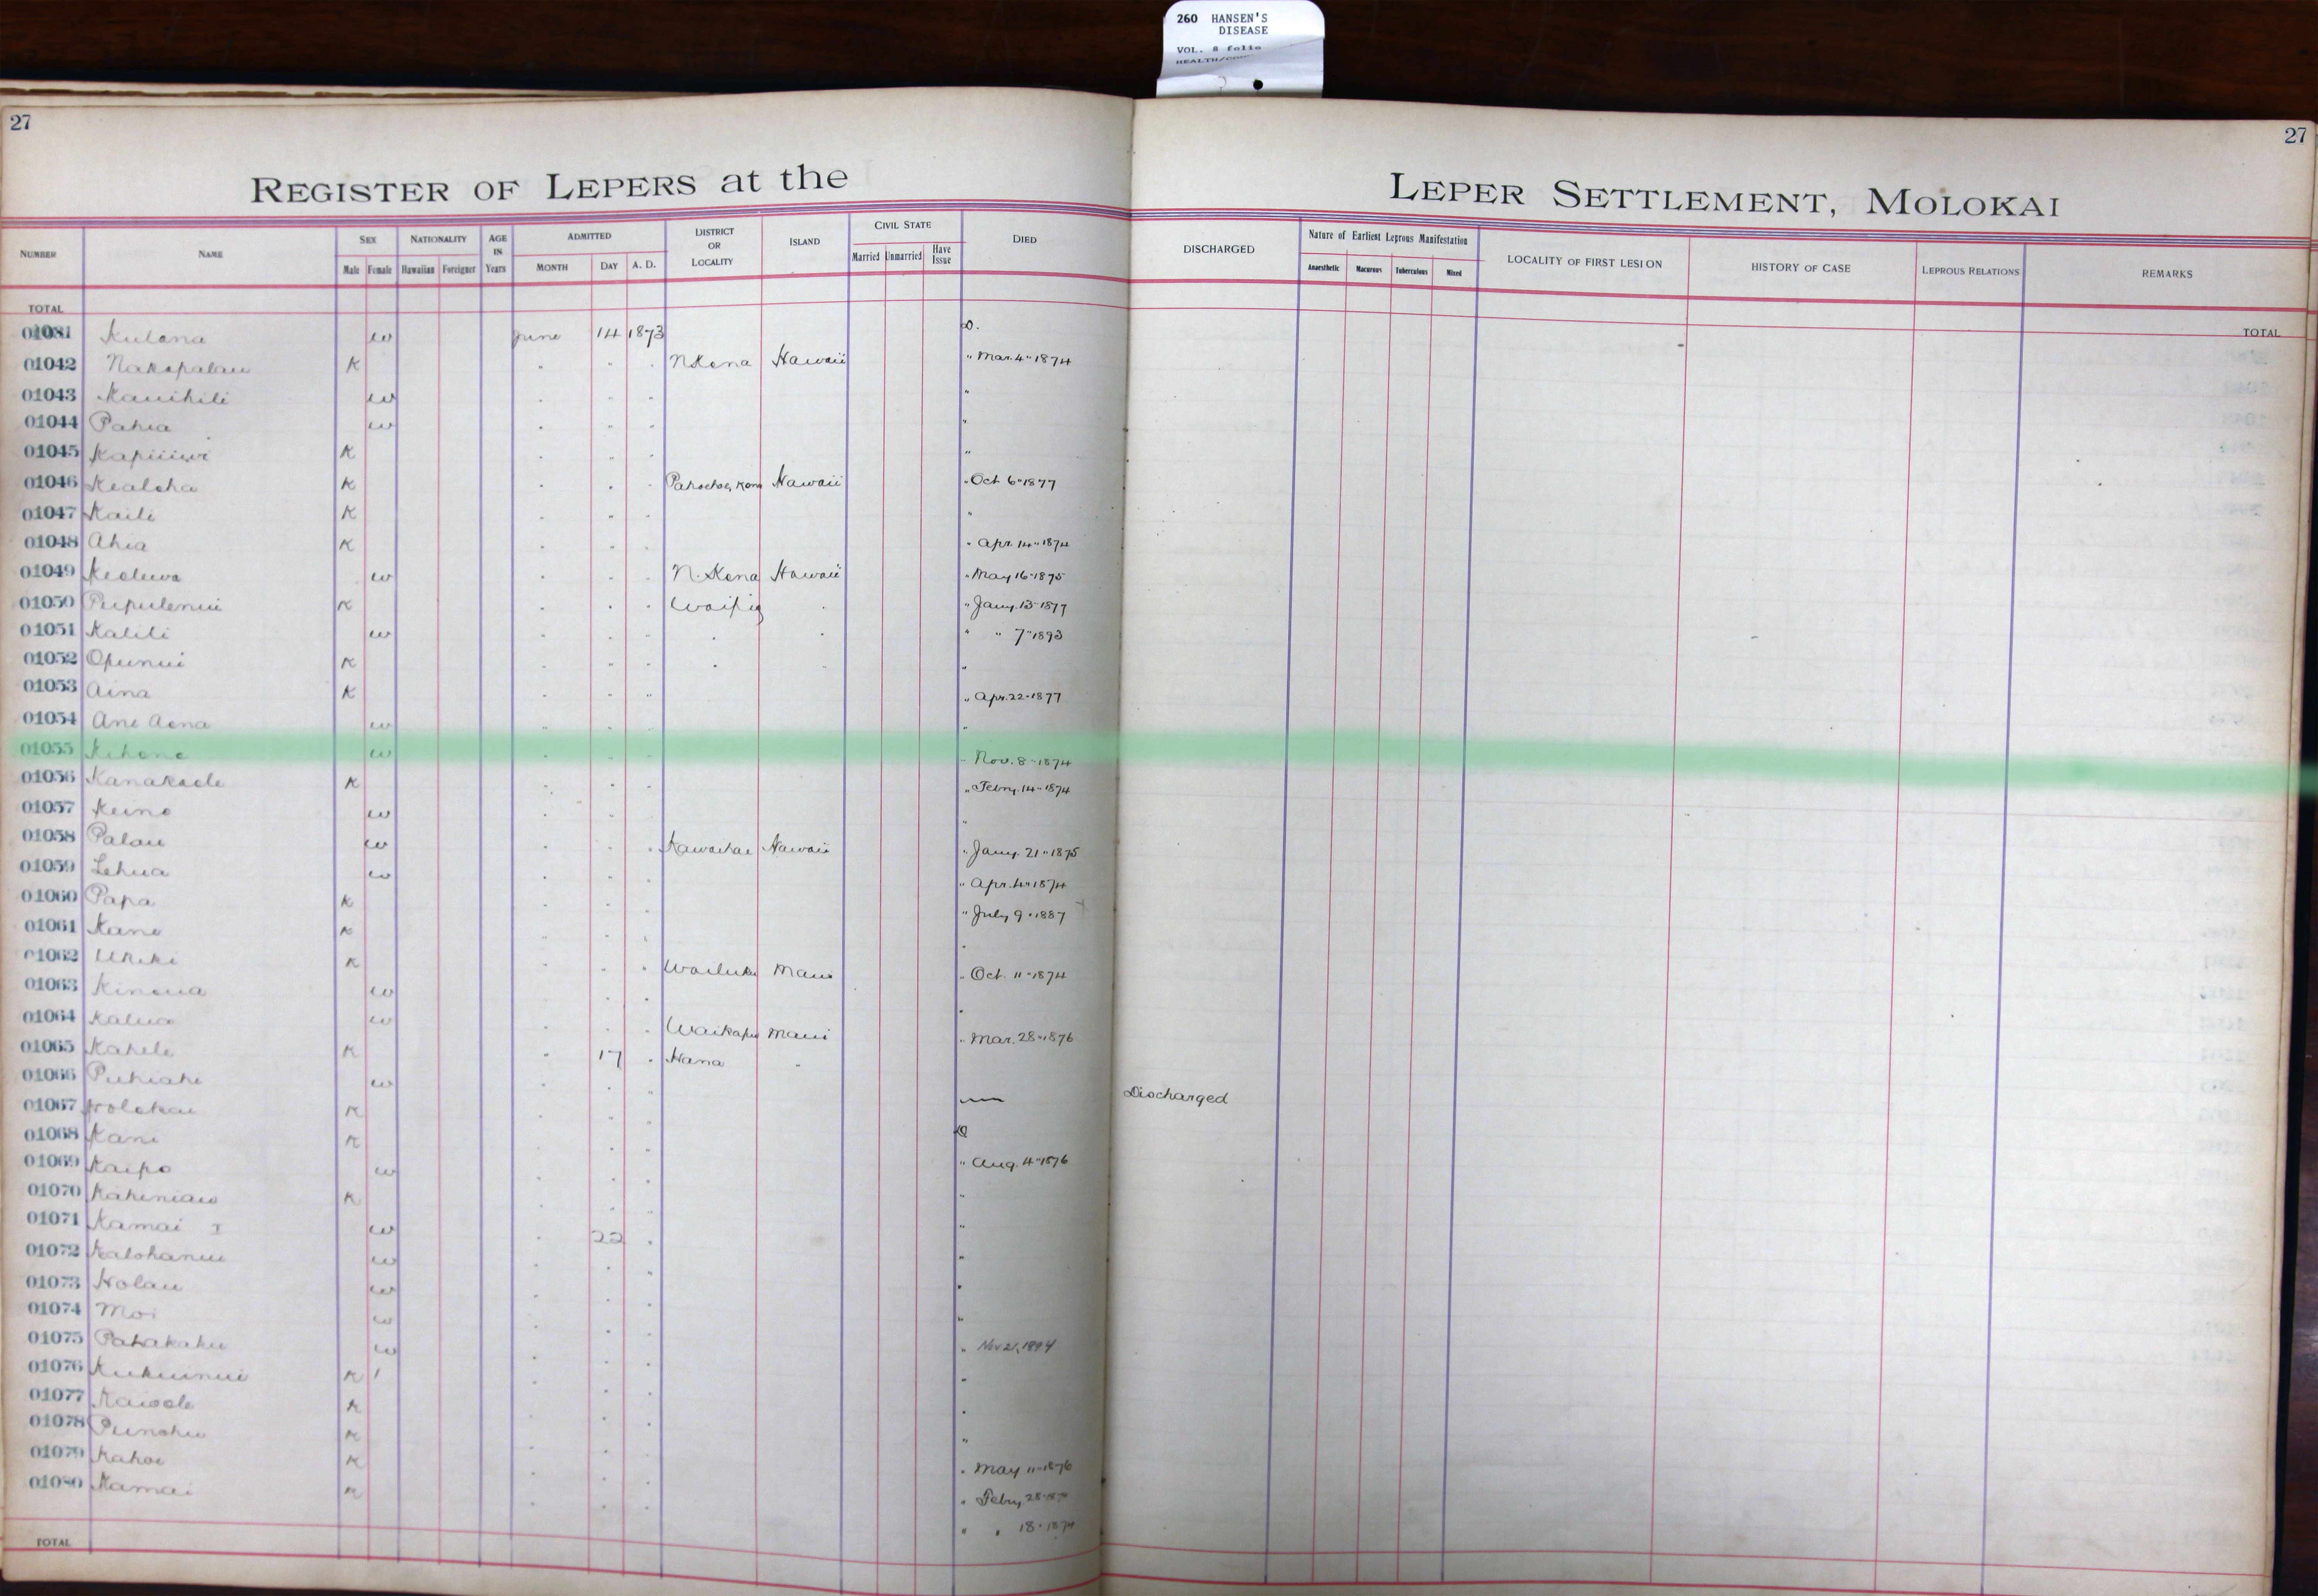 260 HANSEN'S
DISEASE
VOL. 8 folio
27
27
REGISTER OF LEPERS at the
LEPER SETTLEMENT, MOLOKAI
NUMBER NAME SEX NATIONALITY AGE IN Years ADMITTED DISTRICT OR LOCALITY ISLAND CIVIL STATE DIED DISCHARGED Nature of Earliest Leprous Manifestation LOCALITY OF FIRST LESION HISTORY OF CASE LEPROUS RELATIONS REMARKS
Male Female Hawaiian Foreigner MONTH DAY A. D. Married Unmarried Have Issue Anaesthetic Macurous Tuberculous Mixed
TOTAL TOTAL
Kulana w June 14 1873 D.
01042 Nakapalau K " " " N Kona Hawaii " Mar. 4 " 1874
01043 Kauihili w " " " "
01044 Pahia w " " " "
01045 K " " " "
01046 Kealoha K " " " Hawaii " Oct 6 " 1877
01047 Kaili K " " " "
01048 Ahia K " " " " Apr. 14 " 1874
01049 Keoluwa w " " " N. Kona Hawaii " May 16 " 1875
01050 Pupulenui K " " " Waipio " " Jany. 13 " 1877
01051 Kalili w " " " " " " " 7 " 1893
01052 Opunui K " " " " " "
01053 Aina K " " " " Apr. 22 " 1877
01054 Ane Aona w " " " "
01055 Kehona w " " " " Nov. 8 " 1874
01056 Kanakaole K " " " " Febry. 14 " 1874
01057 Keino w " " " "
01058 Palau w " " " Kawaihae Hawaii " Jany. 21 " 1875
01059 Lehua w " " " " Apr. 4 " 1874
01060 Papa K " " " " July 9 " 1887
01061 Kane K " " " "
01062 Ukeke K " " " Wailuku Maui " Oct. 11 " 1874
01063 Kinoua w " " " "
01064 Kalua w " " " Waikapu Maui " Mar. 28 " 1876
01065 Kahele K " 17 " Hana "
01066 Puhiahi w " " " — Discharged
01067 Holokai K " " " D
01068 Kani K " " " " Aug. 4 " 1876
01069 Kaipo w " " " "
01070 Kaheniau K " " " "
01071 Kamai I w " 22 " "
01072 Kalohanui w " " " "
01073 Holau w " " " "
01074 Moi w " " " " Nov 21, 1894
01075 Pahakaku w " " " "
01076 Kukuinui K " " " "
01077 Kaiole K " " " "
01078 Punohu K " " " " May 11 " 1876
01079 Kahoe K " " " " Febry 28
01080 Kamai K " " " " " 18 " 1874
TOTAL